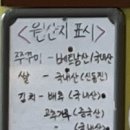 <원산지 표시>
쭈꾸미 - 베트남산/국내산
쌀 - 국내산 (신동진)
김치 - 배추 (국내산)
고춧가루 (중국산)
(국내산)